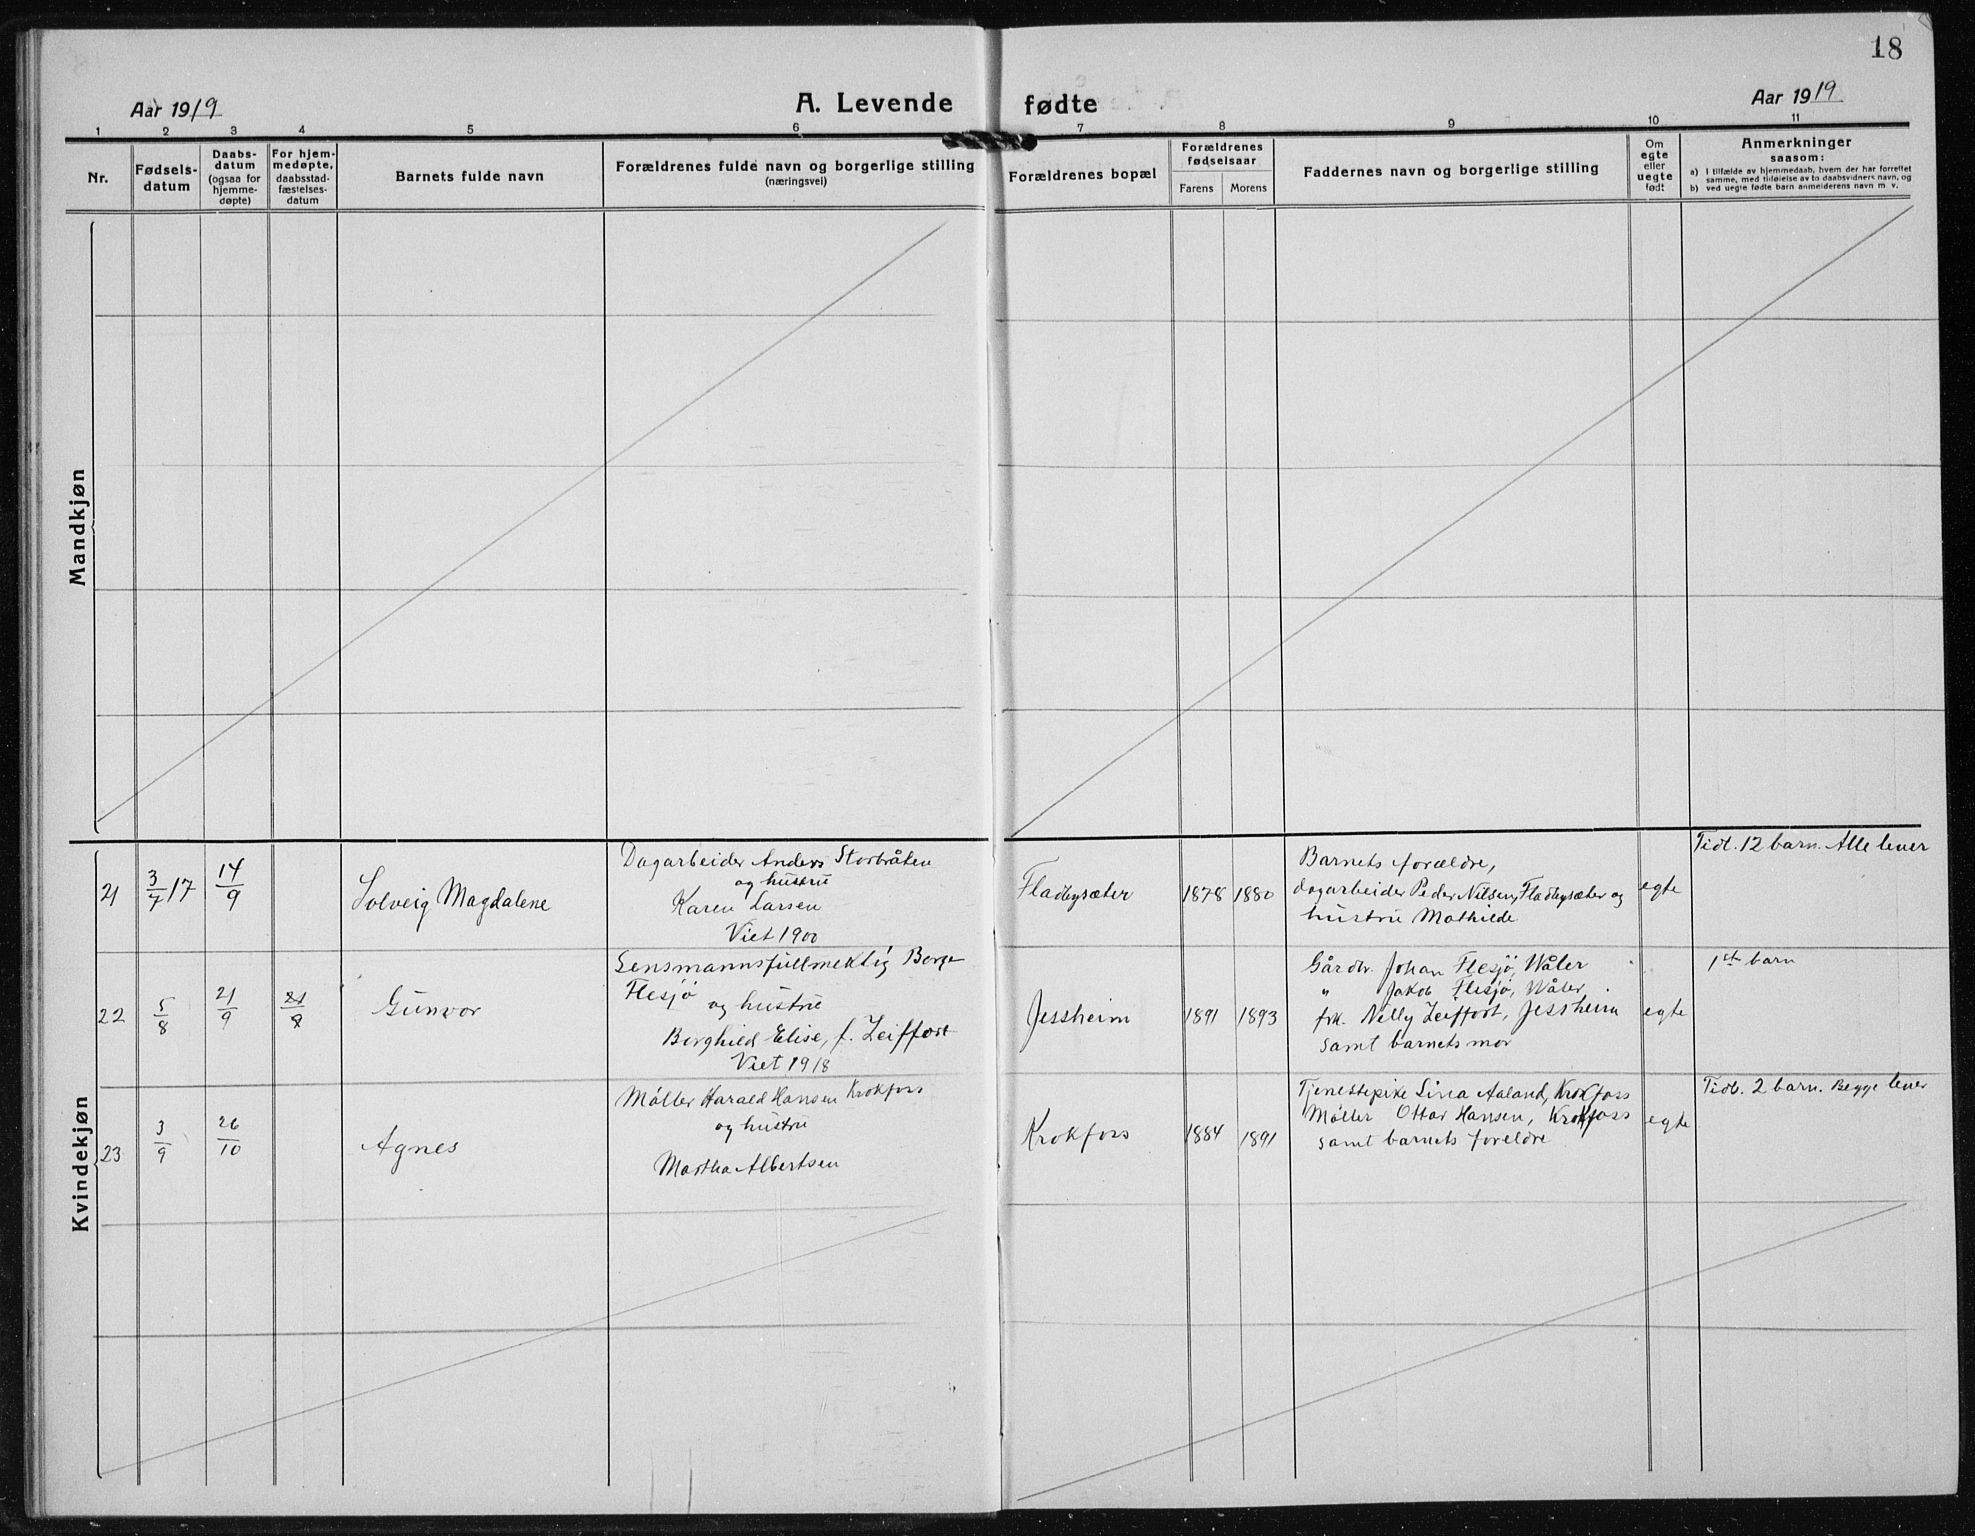 18
Aar 1919
A. Levende fødte
Aar 1919
1 2 3 4 5 6 7 8 9 10 11
Nr.
Fødsels-
datum
Daabs-
datum
(ogsaa for
hjemme-
døpte)
For hjem-
medøpte,
daabsstad-
fæstelses-
datum
Barnets fulde navn
Forældrenes fulde navn og borgerlige stilling
(næringsvei)
Forældrenes bopæl
Forældrenes
fødselsaar
Farens Morens
Faddernes navn og borgerlige stilling
Om
egte
eller
uegte
født
Anmerkninger
saasom:
a) I tilfælde av hjemmedaab, hvem der har forrettet
samme, med tilføielse av to daabsvidners navn, og
b) ved uegte fødte barn anmelderens navn m. v.
Mandkjøn
Kvindekjøn
21
3/7 17
14/9
Solveig Magdalene
Dagarbeider Anders Storbråten
og hustru
Karen Larsen
Viet 1900
Fladbysæter
1878 1880
Barnets forældre,
dagarbeider Peder Nilsen, Fladbysæter og
hustru Mathilde
egte
Tidl. 12 barn. Alle lever
22
5/8
21/9
21/9
Gunvor
Lensmannsfullmektig Borge
Flesjø
og hustru
Borghild Elise, f. Zeiffert
Viet 1918
Jessheim
1891 1893
Gårdbr. Johan Flesjö, Wåler
" Jakob Flesjö, Wåler
frk. Nelly Zeiffert, Jessheim
samt barnets mor
egte
1ste barn
23
3/9
26/10
Agnes
Møller Harald Hansen Krokfoss
og hustru
Martha Albertsen
Krokfoss
1884 1891
Tjenestepike Lina Aaland, Krokfoss
Møller Ottar Hansen, Krokfoss
samt barnets foreldre
egte
Tidl. 2 barn. Begge lever